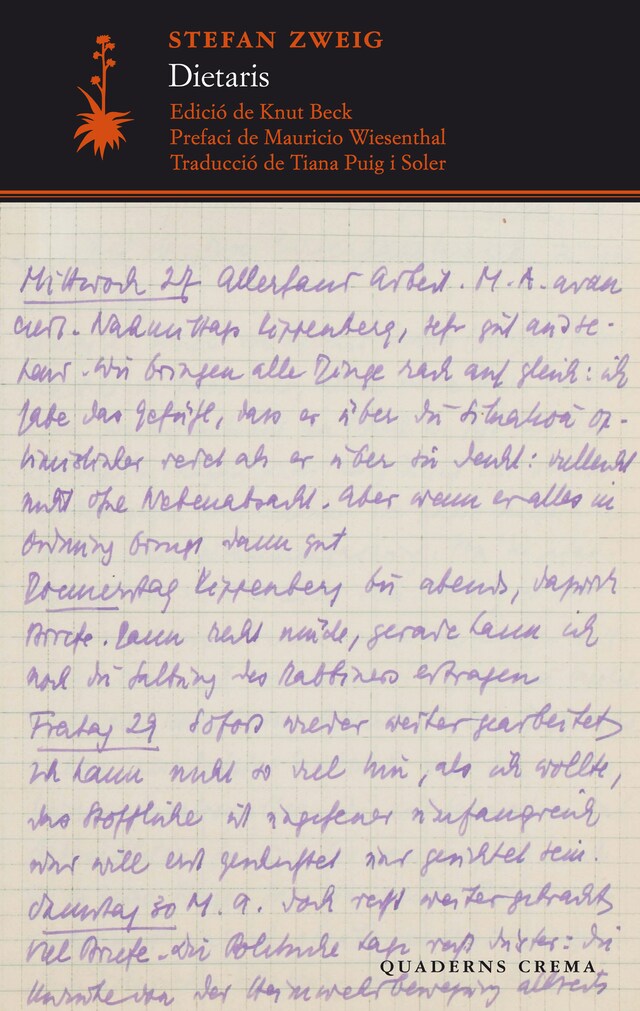 STEFAN ZWEIG
Dietaris
Edició de Knut Beck
Prefaci de Mauricio Wiesenthal
Traducció de Tiana Puig i Soler
Mittwoch 27 Allerhand Arbeit. M. A. avan
ciert. Nachmittags Kippenberg, sehr gut und
Wir bringen alle Dinge rasch auf gleich: ich
habe das Gefühl, dass er über die Situation op-
timistischer redet als er über sie denkt: vielleicht
nicht ohne Nebenabsicht. Aber wenn er alles in
Ordnung bringt dann gut
Donnerstag Kippenberg bis abends, dazwisch
Briefe. Dann recht müde, gerade kann ich
noch die des Rabbiners ertragen
Freitag 29 Sofort wieder weitergearbeitet
Ich kann nicht so viel tun, als ich wollte,
das Stoffliche ist ungeheuer umfangreich
und will erst gesichtet sein.
Samstag 30 M. A. doch recht weitergebracht
viel Briefe. Die Politische Lage recht düster: die
von der Heimwehrbewegung
QUADERNS CREMA